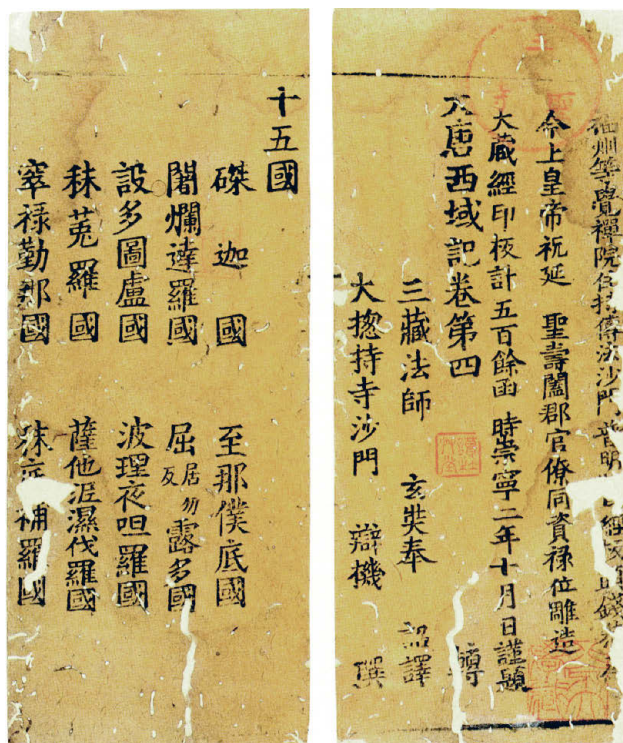 福州等覺禪院住持傳法沙門普明
今上皇帝祝延 聖壽闔郡官僚同資祿位雕造
大藏經印板計五百餘函 時崇寧二年十月日謹題
大唐西域記卷第四
三藏法師 玄奘奉 詔譯
大揔持寺沙門 辯機 撰
十五國
磔迦國 至那僕底國
闍爛達羅國 屈居勿反露多國
設多圖盧國 波理夜呾羅國
秣菟羅國 薩他泥濕伐羅國
窣祿勤那國 補羅國